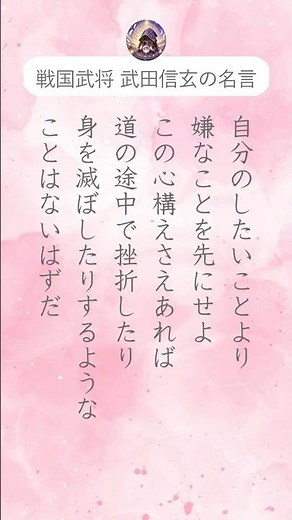 戦国武将 武田信玄の名言
自分のしたいことより
嫌なことを先にせよ
この心構えさえあれば
道の途中で挫折したり
身を滅ぼしたりするような
ことはないはずだ